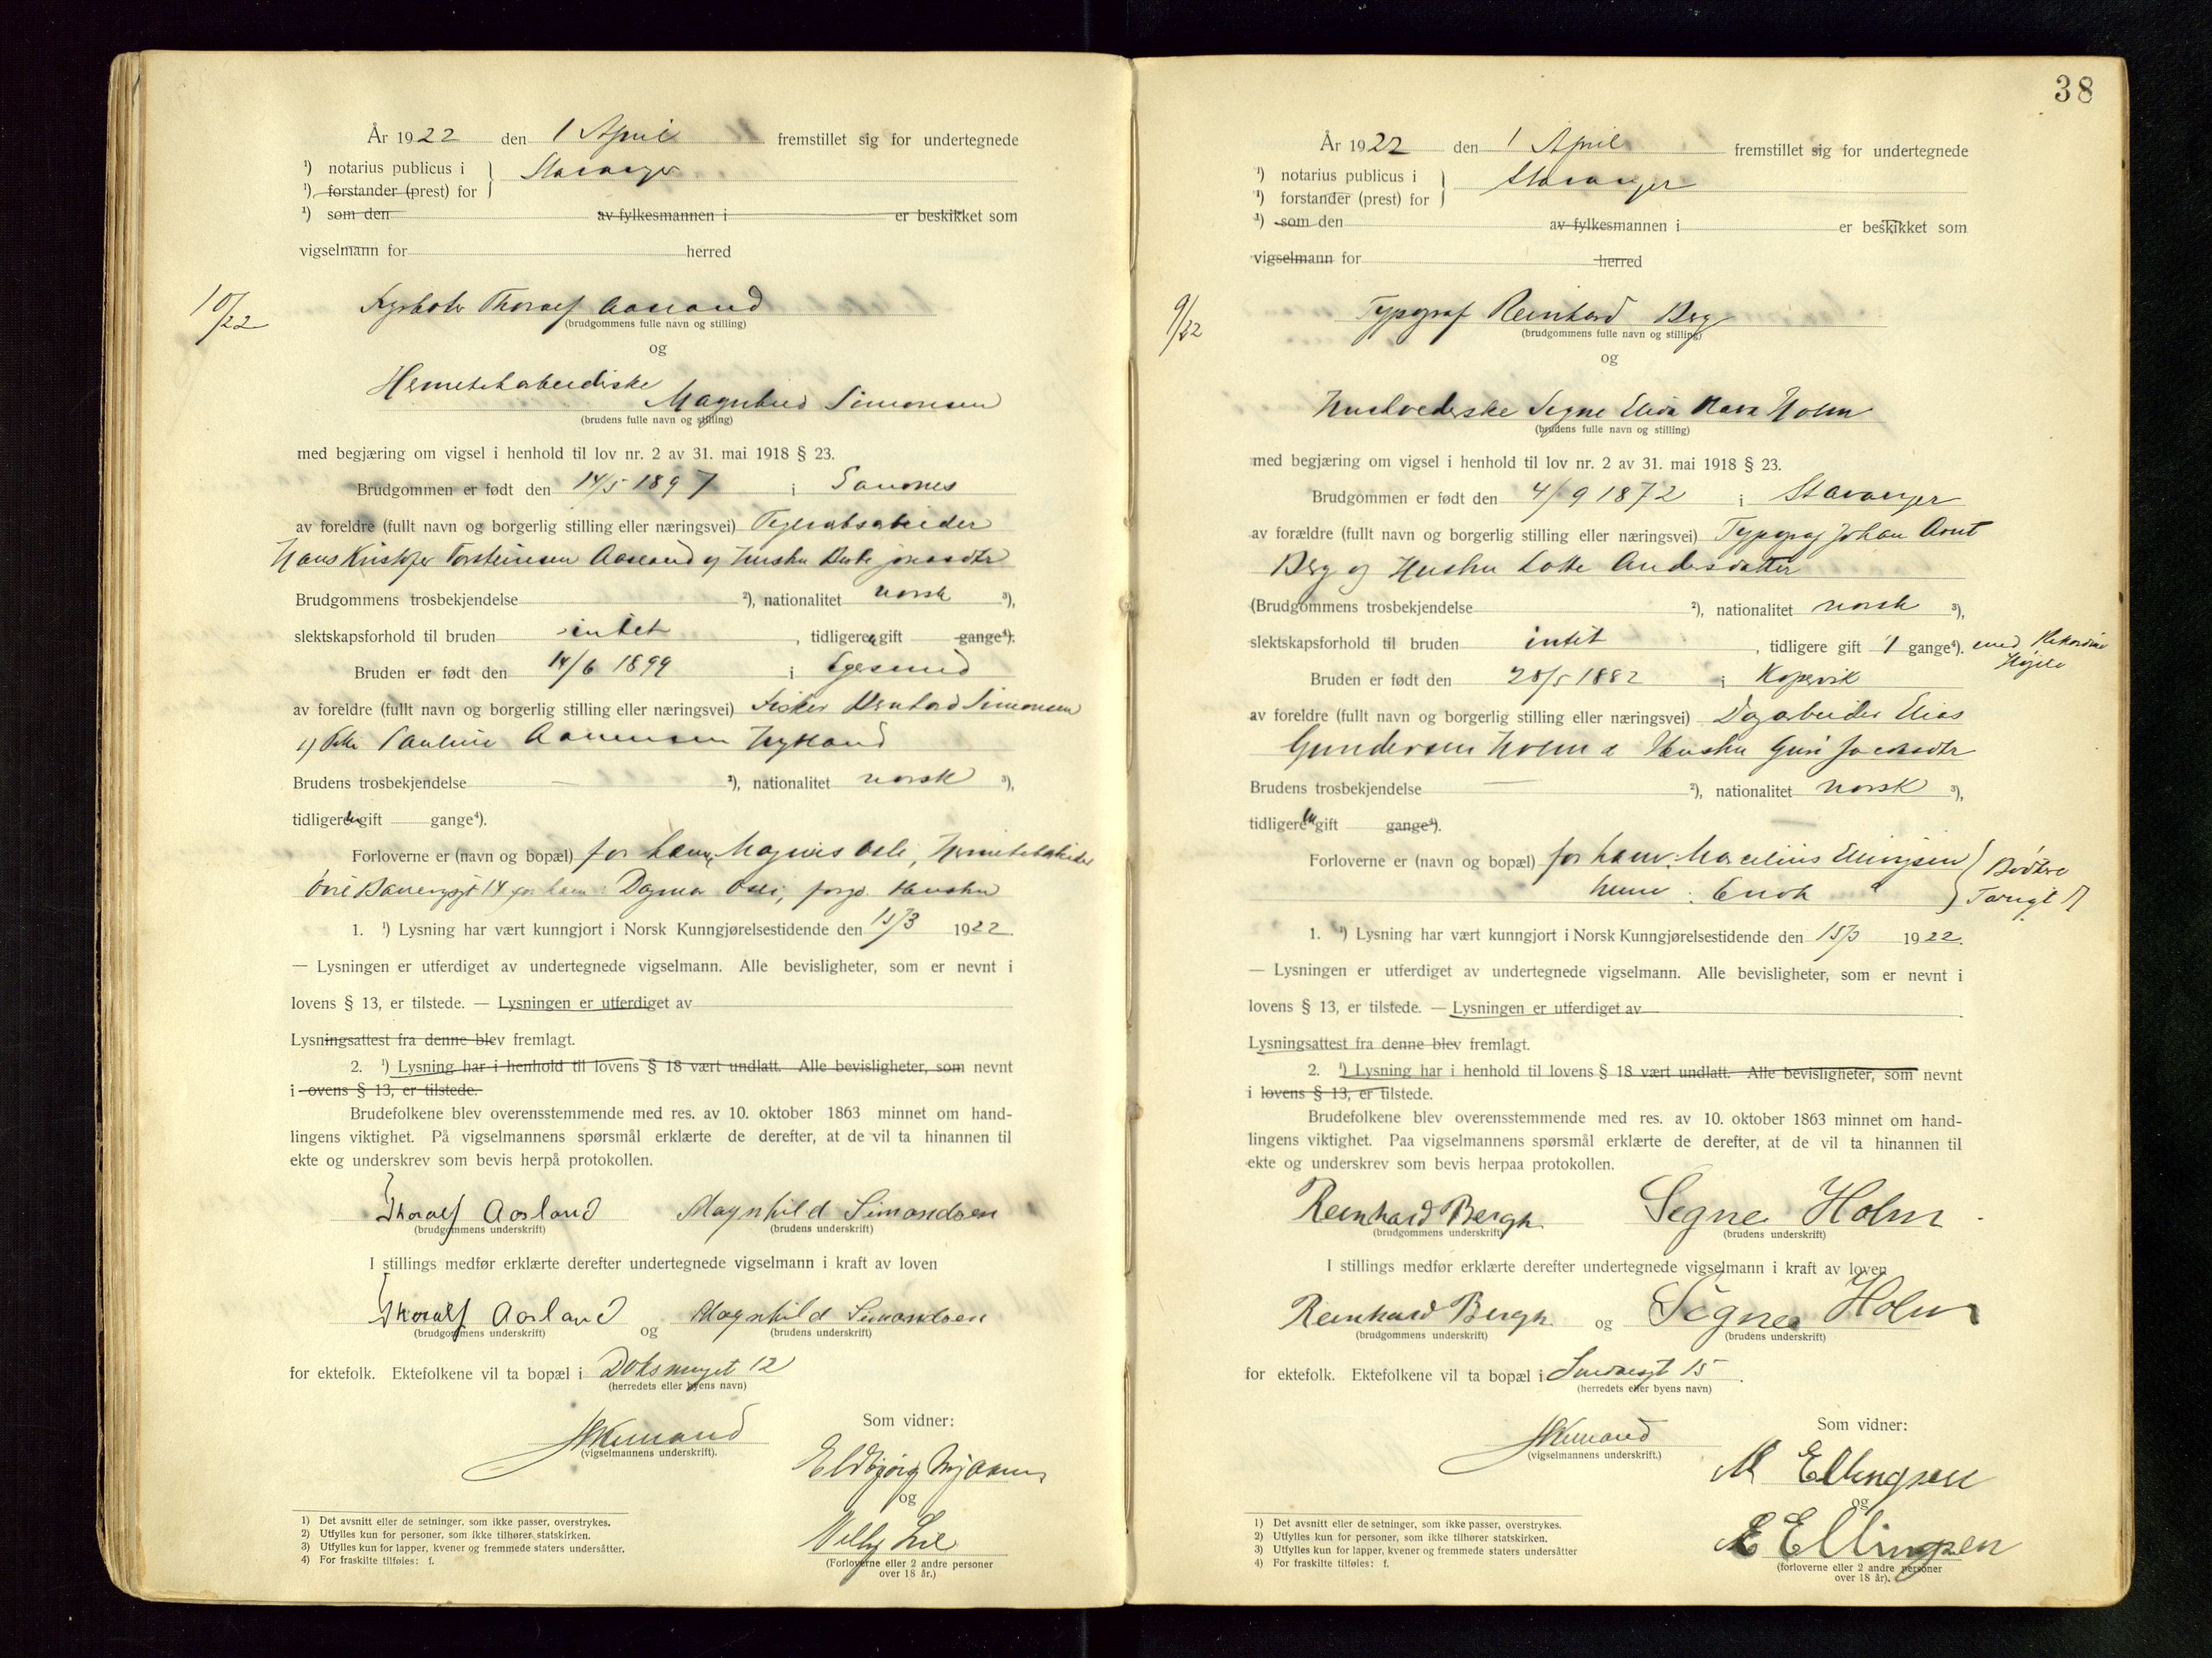 År 1922 den 1 April fremstillet sig for undertegnede
¹) notarius publicus i
¹) forstander (prest) for
Stavanger
¹) som den av fylkesmannen i er beskikket som
vigselmann for herred
10/22
Fyrbøter Thoralf Aasland
(brudgommens fulle navn og stilling)
og
Hermetikarbeiderske
Magnhild Simonsen
(brudens fulle navn og stilling)
med begjæring om vigsel i henhold til lov nr. 2 av 31. mai 1918 § 23.
Brudgommen er født den 14/5 1897 i Sandnes
av foreldre (fullt navn og borgerlig stilling eller næringsvei)
Hans Kristofer Torsteinsen Aasland og Hustru
Brudgommens trosbekjendelse ²), nationalitet norsk ³),
slektskapsforhold til bruden intet, tidligere gift gange⁴).
Bruden er født den 14/6 1899 i Egersund
av foreldre (fullt navn og borgerlig stilling eller næringsvei) Fisker Simonsen
Pauline
Brudens trosbekjendelse — ²), nationalitet norsk ³),
tidligere gift gange⁴).
Forloverne er (navn og bopæl) for ham, Magnus
14 for ham: Dagmar
1. ¹) Lysning har vært kunngjort i Norsk Kunngjørelsestidende den 15/3 1922.
— Lysningen er utferdiget av undertegnede vigselmann. Alle bevisligheter, som er nevnt i
lovens § 13, er tilstede. — Lysningen er utferdiget av
Lysningsattest fra denne blev fremlagt.
2. ¹) Lysning har i henhold til lovens § 18 vært undlatt. Alle bevisligheter, som nevnt
i ovens § 13, er tilstede.
Brudefolkene blev overensstemmende med res. av 10. oktober 1863 minnet om hand-
lingens viktighet. På vigselmannens spørsmål erklærte de derefter, at de vil ta hinannen til
ekte og underskrev som bevis herpå protokollen.
Thoralf Aasland Magnhild Simondsen
(brudgommens underskrift) (brudens underskrift)
I stillings medfør erklærte derefter undertegnede vigselmann i kraft av loven
Thoralf Aasland og Magnhild Simondsen
(brudgommens underskrift) (brudens underskrift)
for ektefolk. Ektefolkene vil ta bopæl i 12
(herredets eller byens navn)
(vigselmannens underskrift).
Som vidner:
Eldbjørg
og
Willy Lie
(Forloverne eller 2 andre personer
over 18 år.)
1) Det avsnitt eller de setninger, som ikke passer, overstrykes.
2) Utfylles kun for personer, som ikke tilhører statskirken.
3) Utfylles kun for lapper, kvener og fremmede staters undersåtter.
4) For fraskilte tilføies: f.
38
År 1922 den 1 April fremstillet sig for undertegnede
¹) notarius publicus i
¹) forstander (prest) for
Stavanger
¹) som den av fylkesmannen i er beskikket som
vigselmann for herred
9/22
Typograf Reinhard Berg
(brudgommens fulle navn og stilling)
og
Signe Holm
(brudens fulle navn og stilling)
med begjæring om vigsel i henhold til lov nr. 2 av 31. mai 1918 § 23.
Brudgommen er født den 4/9 1872 i Stavanger
av forældre (fullt navn og borgerlig stilling eller næringsvei) Typograf Johan Arnt
Berg og Hustru Lotte Andersdatter
(Brudgommens trosbekjendelse ²), nationalitet norsk ³),
slektskapsforhold til bruden intet, tidligere gift 1 gange⁴). med
Bruden er født den 28/5 1882 i Kopervik
av foreldre (fullt navn og borgerlig stilling eller næringsvei) Dagarbeider Elias
Gundersen Holm & Hustru Guri
Brudens trosbekjendelse — ²), nationalitet norsk ³),
tidligere gift gange⁴).
Forloverne er (navn og bopæl) for ham: Marcelius Ellingsen
1. ¹) Lysning har vært kunngjort i Norsk Kunngjørelsestidende den 15/3 1922.
— Lysningen er utferdiget av undertegnede vigselmann. Alle bevisligheter, som er nevnt i
lovens § 13, er tilstede. — Lysningen er utferdiget av
Lysningsattest fra denne blev fremlagt.
2. ¹) Lysning har i henhold til lovens § 18 vært undlatt. Alle bevisligheter, som nevnt
i lovens § 13, er tilstede.
Brudefolkene blev overensstemmende med res. av 10. oktober 1863 minnet om hand-
lingens viktighet. Paa vigselmannens spørsmål erklærte de derefter, at de vil ta hinannen til
ekte og underskrev som bevis herpaa protokollen.
Reinhard Bergh Signe Holm
(brudgommens underskrift) (brudens underskrift)
I stillings medfør erklærte derefter undertegnede vigselmann i kraft av loven
Reinhard Bergh og Signe Holm
(brudgommens underskrift) (brudens underskrift)
for ektefolk. Ektefolkene vil ta bopæl i 15.
(herredets eller byens navn)
(vigselmannens underskrift.)
Som vidner:
M Ellingsen
og
E Ellingsen
(forloverne eller 2 andre personer
over 18 år).
1) Det avsnitt eller de setninger, som ikke passer, overstrykes.
2) Utfylles kun for personer, som ikke tilhører statskirken.
3) Utfylles kun for lapper, kvener og fremmede staters undersåtter
4) For fraskilte tilføies: f.